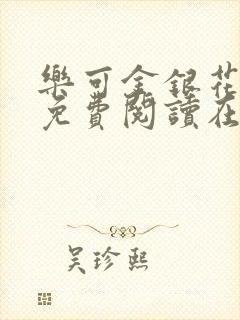 樂可金銀花
免費閱讀在
吳珍熙